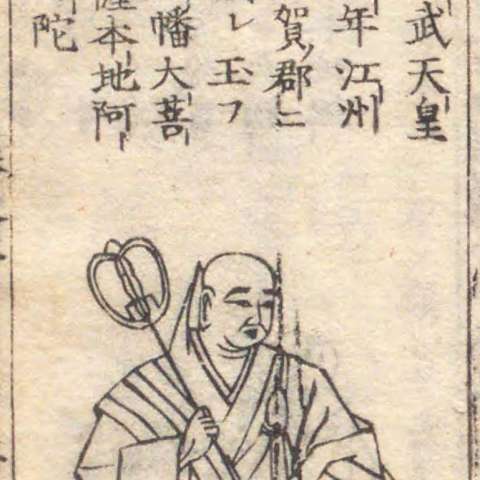 武天皇
年江州
賀ノ郡ニ
レ玉フ
幡大菩
本地阿
陀